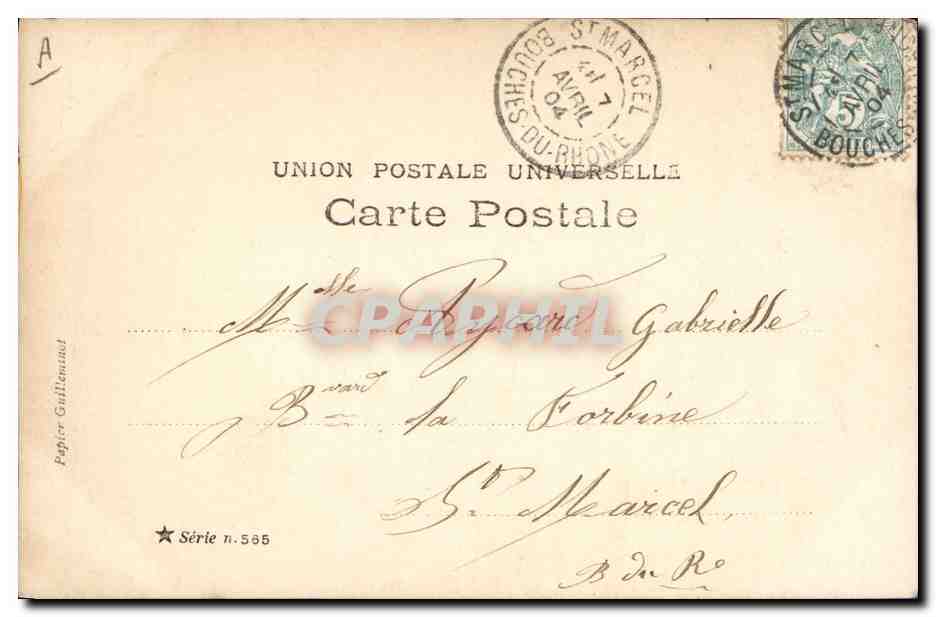 A
ST MARCEL
BOUCHES-DU-RHONE
7
AVRIL
04
ST MARCEL
7
AVRIL
04
5
BOUCHES
UNION POSTALE UNIVERSELLE
Carte Postale
CPAPHIL
Mlle Gabrielle
Bvard la Forbine
St Marcel
B du Re
Papier Guilleminot
Série n. 565